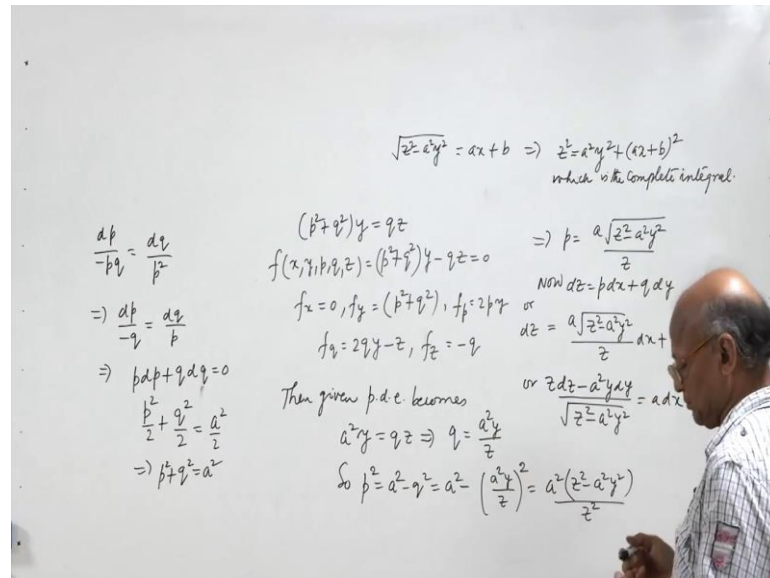 √(z²-a²y²) = ax+b ⇒ z² = a²y²+(ax+b)²
which is the complete integral.
dp/-pq = dq/p²
⇒ dp/-q = dq/p
⇒ pdp+qdq=0
p²/2 + q²/2 = a²/2
⇒ p²+q²=a²
(p²+q²)y = qz
f(x,y,p,q,z)=(p²+q²)y-qz=0
fx=0, fy=(p²+q²), fp=2py
fq=2qy-z, fz=-q
Then given p.d.e. becomes
a²y=qz ⇒ q = a²y/z
So p²=a²-q²=a²-(a²y/z)² = a²(z²-a²y²)/z²
⇒ p = a√(z²-a²y²)/z
Now dz=pdx+qdy
or
dz = a√(z²-a²y²)/z dx+
or zdz-a²ydy/√(z²-a²y²) = adx